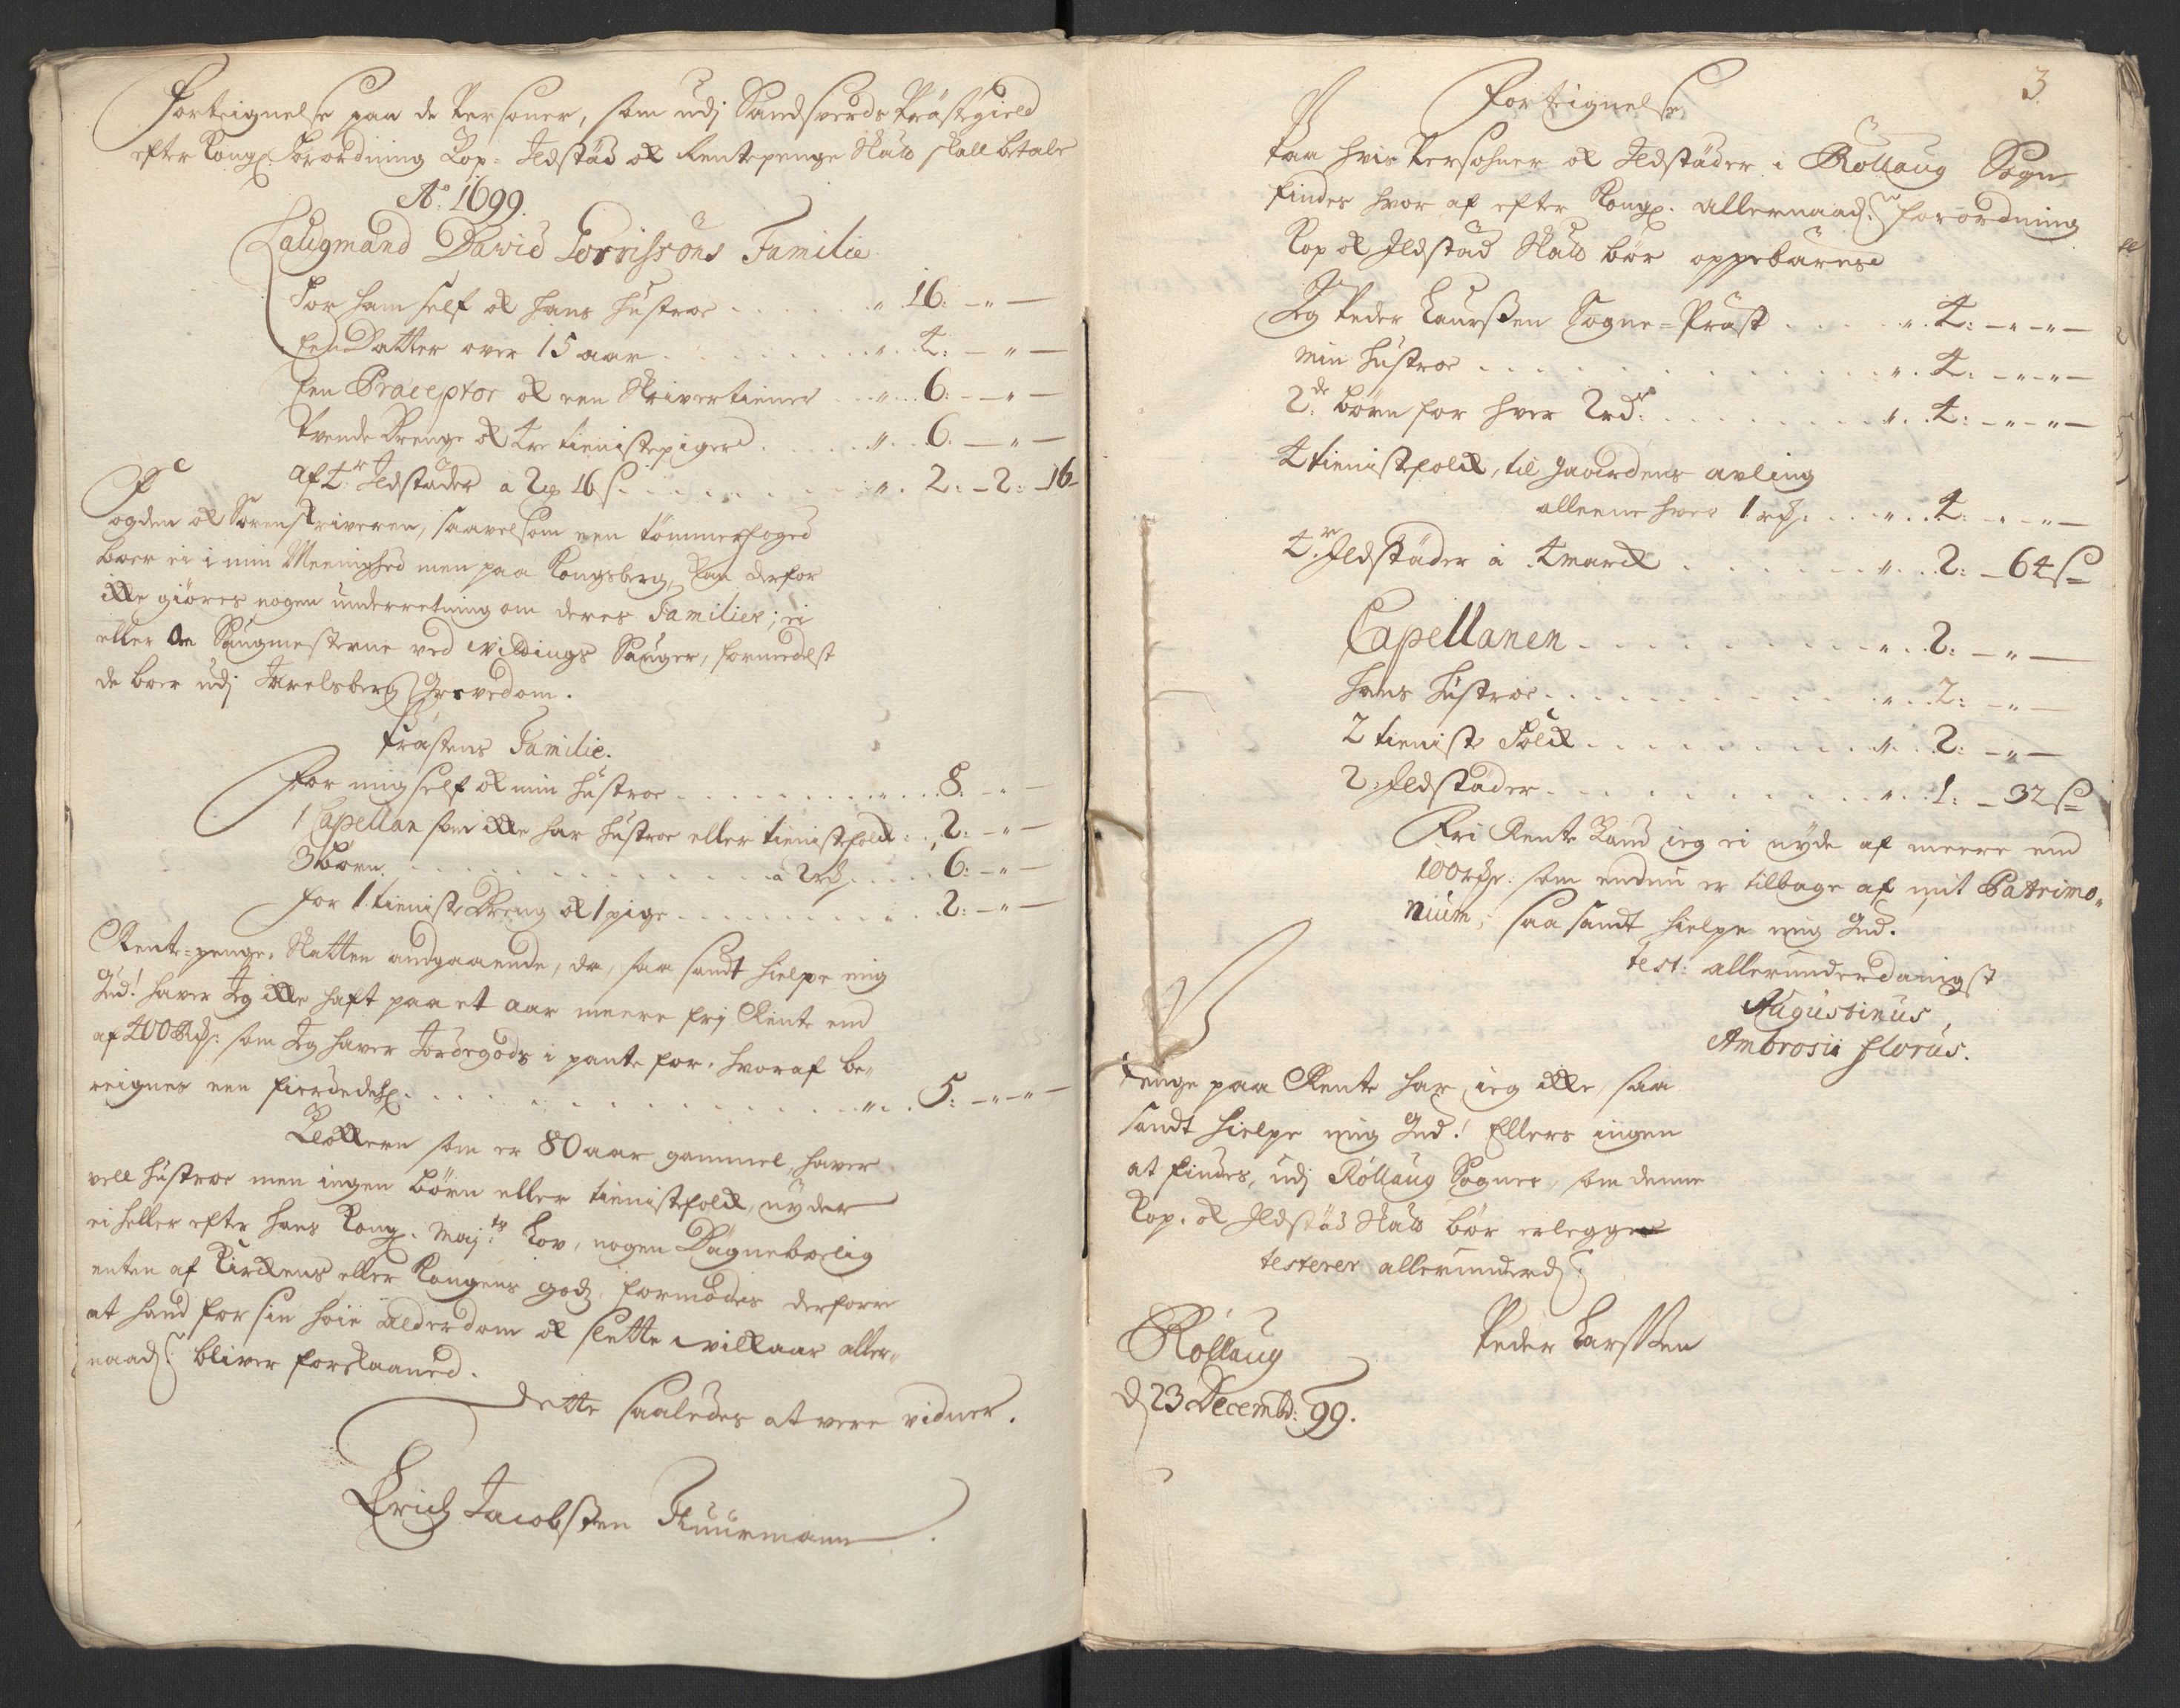 Forteignelse paa de Personer, som udj Sandsverds Præstegield
efter Kongl. Forordning Kop- Ildstæd ok Rentepenge Skatt skall betale
Ao. 1699.
Laugmand David Gorrissøns Familie
For ham self ok hans Hustroe . . . . . „ 16: – „ –
Een Datter over 15 aar . . . . . „ . 4: – „ –
Een Præceptor ok een Skrivertiener . . „ . . 6: – „ –
Tvende Drenge ok tre tienistepiger . . . . „ . . 6. – „ –
af 4r Ildstæder a 2 16 s. . . . . . „ . 2: – 2: – 16 –
Fogden ok Sorenskriveren, saavelsom een tømmerfoged
boer ei i min Meenighed men paa Kongsberg, kan derfor
ikke giøres nogen underretning om deres Familier; ei
eller om Saugmesterne ved Vildings Sauger, formedelst
de boer udj Jarelsberg Grevedom.
Præstens Familie.
For mig self ok min Hustroe . . . . . „ . . 8. – „ –
1 Capellan som ikke har Hustroe eller tienistefolk . . 2: – „ –
3 børn . . . . . a 2 rd. . . . 6: – „ –
for 1 tieniste Dreng ok 1 pige . . . . . 2: – „ –
Rente-penge-Skatten andgaaende, da, saa sandt hielpe mig
Gud! haver Jeg ikke haft paa et aar meere frj Rente end
af 400 Rdr: som Jeg haver Jordegods i pante for, hvoraf be„
reignes een fierdedehl. . . . . . „ . . 5: – „ – „ –
Klokkeren som er 80 aar gammel, haver
vell Hustroe men ingen børn eller tienistefolk, nyder
ei heller efter hans Kong. Maj:ts Lov, nogen Degnebolig
enten af Kirkens eller Kongens gods, formodes derfore
at hand for sin høie Alderdom ok slette vilkaar aller„
naad. bliver forskaaned.
Dette saaledes at vere vidner.
Erich Jacobssen Fuurmann.
3.
Forteignelse
Paa hvis Persohner ok Ildstæder i Rollaug Sogn
findes hvor af efter Kongl. allernaad.ste forordning
Kop ok Ildstæd Skatt bør oppebæres
Jeg Peder Laurssen Sogne-Præst . . . . „ . 4: – „ – „ –
Min Hustroe . . . . . „ . 4: – „ – „ –
2de. børn for hver 2 rdr. . . . . „ . 4: – „ – „ –
4 tienistefolk, til gaardens avling
alleene hver 1 rdr. . . . „ . . 4: – „ – „ –
4r. Ildstæder à 4 mark . . . . „ . . 2: – 64 s
Capellanen . . . . . „ . 2: – „ –
hans Hustroe . . . . . „ . . 2: – „ –
2 tieniste Folk . . . . . „ . 2: – „ –
2. Ildstæder . . . . . „ . . 1: – 32 s
Fri Rente kand ieg ei nyde af meere end
100 rdr: som endnu er tilbage af mit Patrimo„
nium, saa sandt hielpe mig Gud.
test: allerunderdanigst
Augustinus
Ambrosii florus.
Penge paa Rente har ieg ikke, saa
sandt hielpe mig Gud! Ellers ingen
at findes, udj Rollaug Sogner, som denne
Kop- ok Ildstæd Skatt bør erlegge
testerer allerunderd.
Rollaug Peder Larssen
d 23 Decembr: 99.